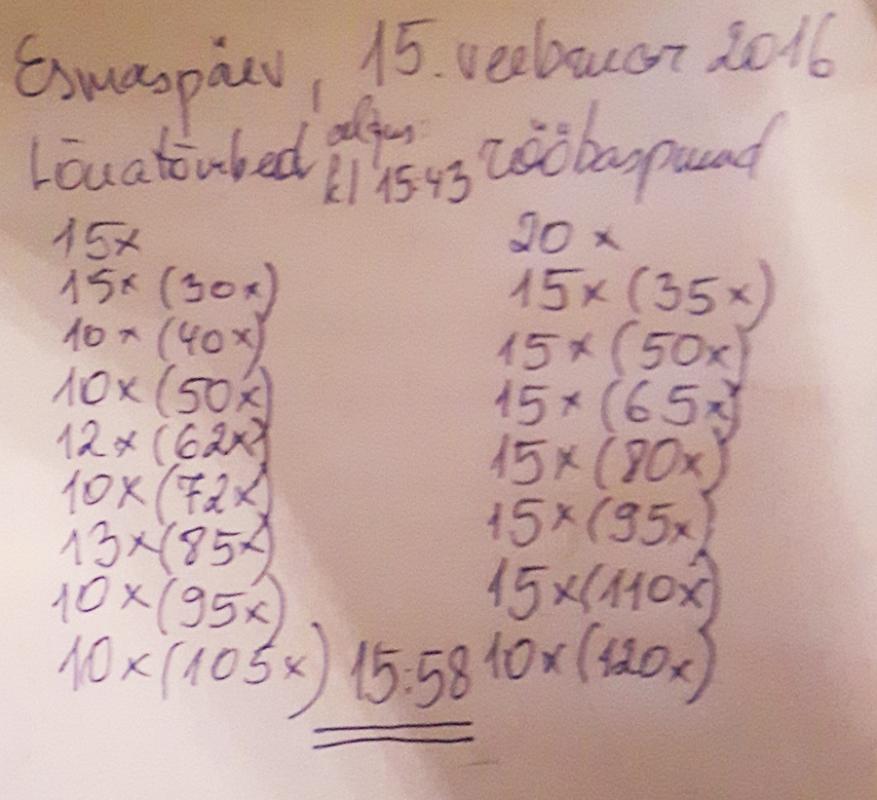 Esmaspäev, 15. veebruar 2016
Lõuatõmbed algus: kl 15:43 rööbaspuud
15x 20 x
15x (30x) 15x (35x)
10x (40x) 15x (50x)
10x (50x) 15x (65x)
12x (62x) 15x (80x)
10x (72x) 15x (95x)
13x (85x) 15x (110x)
10x (95x) 10x (120x)
10x (105x) 15:58